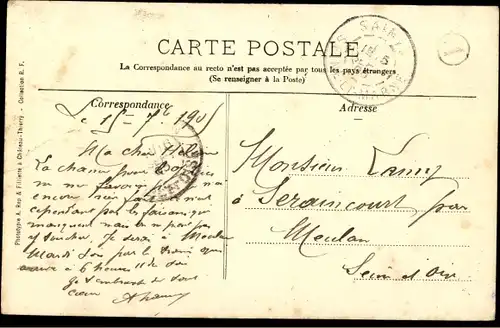 CARTE POSTALE
La Correspondance au recto n'est pas acceptée par tous les pays étrangers
(Se renseigner à la Poste)
Correspondance
Adresse
Le 15 = 7bre 1905
Ma chère
La chance pour
ne me favorise pas
encore
cependant pas les faisans qui
manquent mais on n'en peut pas
y toucher. Je serai à Meulan
Mardi soir par le train qui
arrive à 6 heures 11 du soir
Je t'embrasse de tout
cœur
Monsieur Lamy
à Seraincourt par
Meulan
Seine et Oise
Phototypie A. Rep & Filliette à Château-Thierry - Collection R. F.